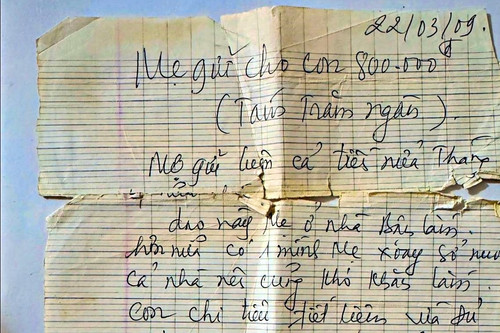 22/03/09.
Mẹ gửi cho con 800.000đ
(Tám Trăm ngàn).
Mẹ gửi luôn cả tiền nửa Tháng
dạo này Mẹ ở nhà Bận lắm.
hơn nữa có 1 mình Mẹ xoay sở nuôi
cả nhà nên cũng khó khăn lắm.
con chi tiêu tiết kiệm và đủ